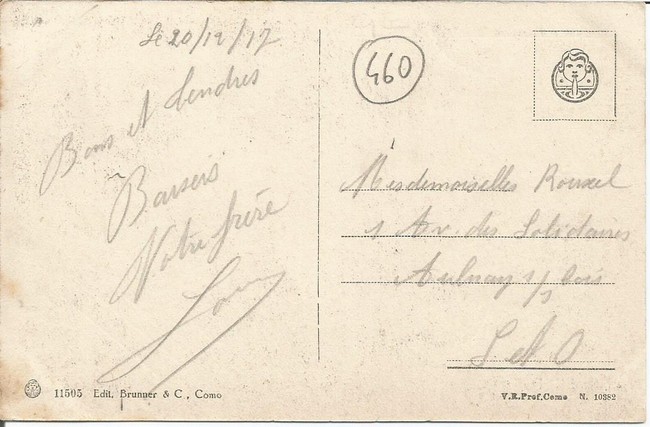 Le 20/12/17
Bons et tendres
Baisers
Votre frère
460
Mesdemoiselles Roussel
1 Av. des Solidaires
Aulnay s/s bois
S et O
11505 Edit. Brunner & C., Como
V.R.Pref.Como N. 10382